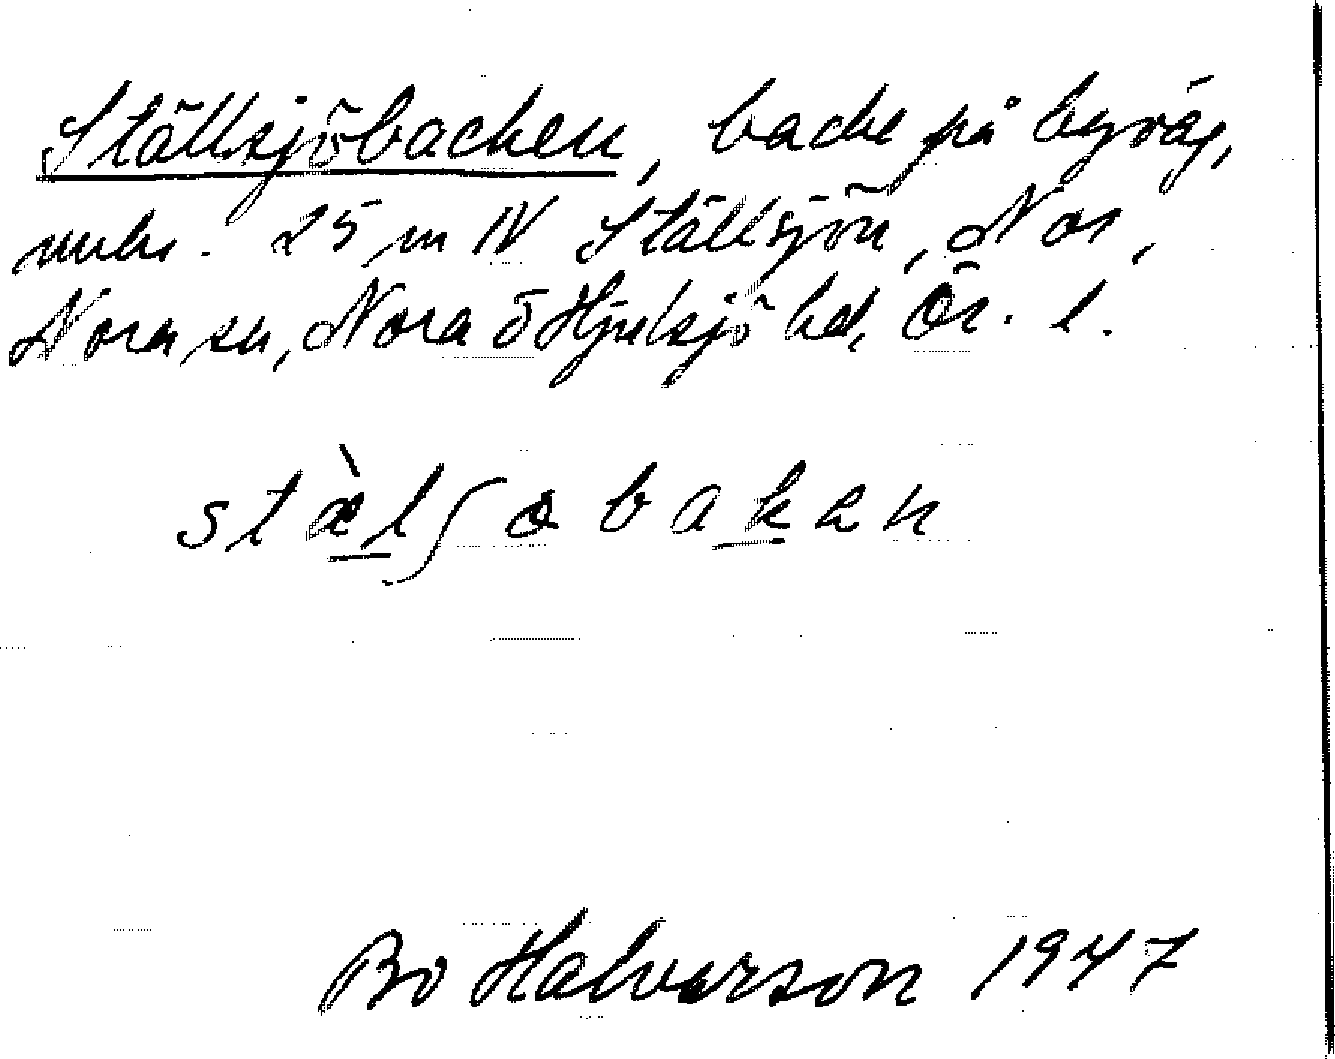 Ställsjöbacken, backe på byväg,
25 m N Ställsjön, Nor,
Nora sn, Nora o Hjulsjö hd, Ör. l.
stæ̀lʃøbakan
Bo Halvarson 1947